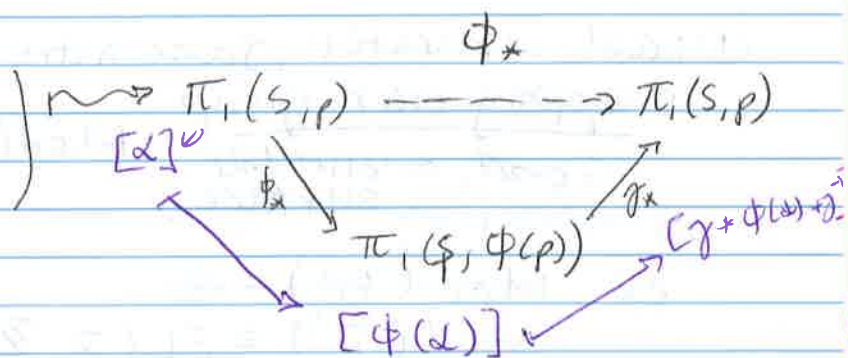 ϕ_*
) ⇝ π₁(S,p) ---→ π₁(S,p)
[α]
ϕ_* γ_*
π₁(S, ϕ(p)) [γ * ϕ(α) * γ⁻¹
[ϕ(α)]